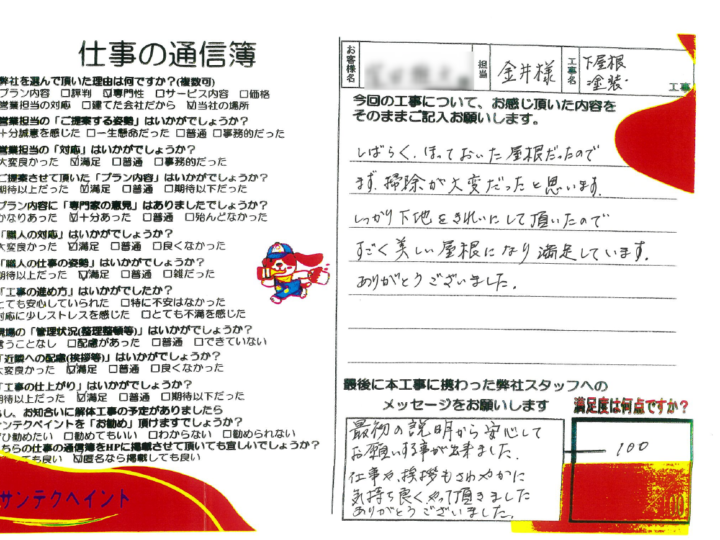 仕事の通信簿
弊社を選んで頂いた理由は何ですか?(複数可)
プラン内容 □評判 ☑専門性 □サービス内容 □価格
営業担当の対応 □建てた会社だから ☑当社の場所
営業担当の「ご提案する姿勢」はいかがでしょうか?
十分誠意を感じた □一生懸命だった □普通 □事務的だった
営業担当の「対応」はいかがでしょうか?
大変良かった ☑満足 □普通 □事務的だった
ご提案させて頂いた「プラン内容」はいかがでしょうか?
期待以上だった ☑満足 □普通 □期待以下だった
プラン内容に「専門家の意見」はありましたでしょうか?
かなりあった ☑十分あった □普通 □殆んどなかった
「職人の対応」はいかがでしょうか?
大変良かった ☑満足 □普通 □良くなかった
「職人の仕事の姿勢」はいかがでしょうか?
期待以上だった ☑満足 □普通 □雑だった
「工事の進め方」はいかがでしたか?
とても安心していられた □特に不安はなかった
対応に少しストレスを感じた □とても不満を感じた
現場の「管理状況(整理整頓等)」はいかがでしょうか?
言うことなし □配慮があった □普通 □できていない
「近隣への配慮(挨拶等)」はいかがでしょうか?
大変良かった ☑満足 □普通 □良くなかった
「工事の仕上がり」はいかがでしょうか?
期待以上だった ☑満足 □普通 □期待以下だった
もし、お知合いに解体工事の予定がありましたら
サンテクペイントを「お勧め」頂けますでしょうか?
ぜひ勧めたい □勧めてもいい □わからない □勧められない
こちらの仕事の通信簿をHPに掲載させて頂いても宜しいでしょうか?
ても良い ☑匿名なら掲載しても良い
サンテクペイント
お客様名
担当 金井様
工事名 下屋根
塗装 工事
今回の工事について、お感じ頂いた内容を
そのままご記入お願いします。
しばらく、ほっておいた屋根だったので
まず、掃除が大変だったと思います。
しっかり下地をきれいにして頂いたので
すごく美しい屋根になり満足しています。
ありがとうございました。
最後に本工事に携わった弊社スタッフへの
メッセージをお願いします
最初の説明から安心して
お願いする事が出来ました。
仕事や、挨拶もさわやかに
気持ち良くやって頂きました
ありがとうございました。
満足度は何点ですか?
100
100